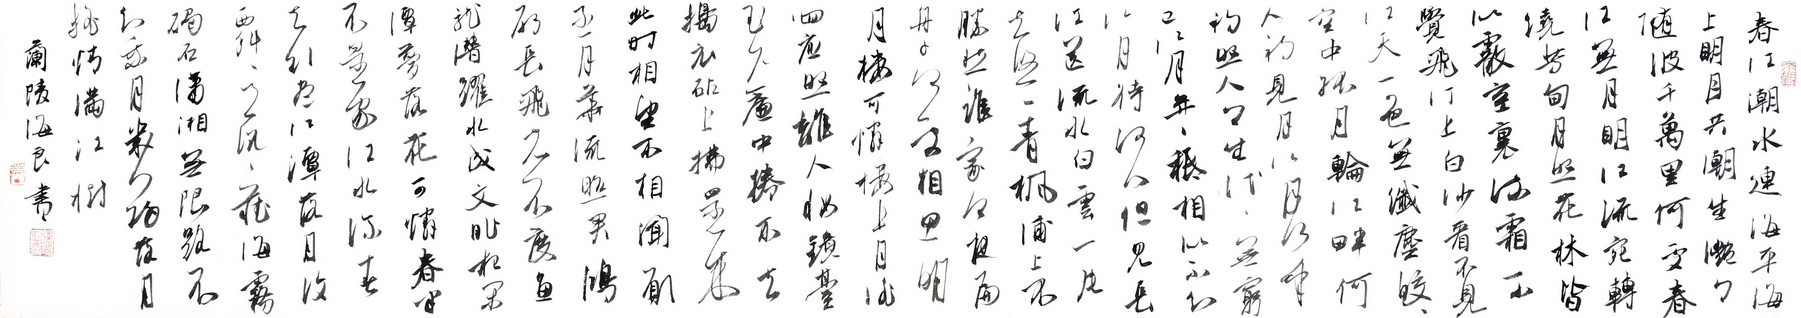 春江潮水連海平海
上明月共潮生灧々
隨波千萬里何處春
江無月明江流宛轉
繞芳甸月照花林皆
似霰空裏流霜不
覺飛汀上白沙看不見
江天一色無纖塵皎々
空中孤月輪江畔何
人初見月江月何年
初照人人生代々無窮
已江月年々秖相似不知
江月待何人但見長
江送流水白雲一片
去悠々青楓浦上不
勝愁誰家今夜扁
舟子何處相思明
月樓可憐樓上月徘
徊應照離人妝鏡臺
玉戶簾中捲不去
擣衣砧上拂還來
此時相望不相聞願
逐月華流照君鴻
雁長飛光不度魚
龍潛躍水成文昨夜閑
潭夢落花可憐春半
不還家江水流春
去欲盡江潭落月復
西斜々月沉々藏海霧
碣石瀟湘無限路不
知乘月幾人歸落月
搖情滿江樹
蘭陵海良書